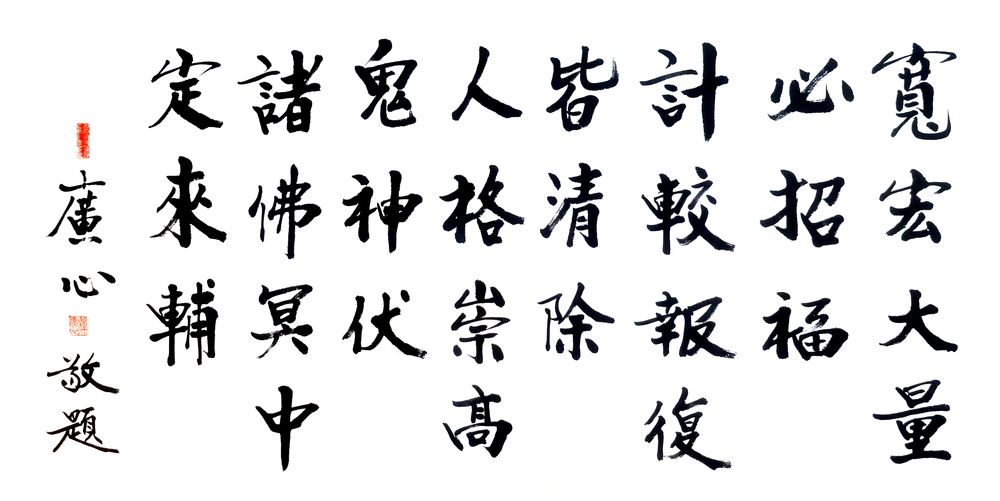 寬宏大量
必招福
計較報復
皆清除
人格崇高
鬼神伏
諸佛冥中
定來輔
廣心敬題